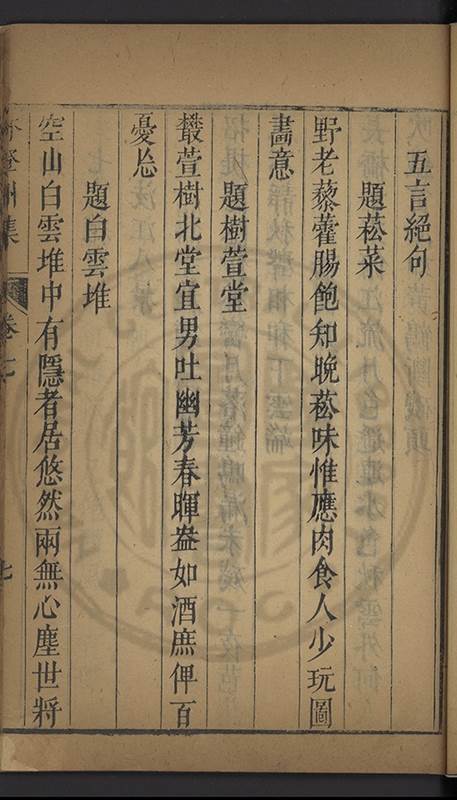 五言絕句
題菘菜
野老藜藿腸飽知晚菘味惟應肉食人少玩圖
畵意
題樹萱堂
叢萱樹北堂宜男吐幽芳春暉盎如酒庶俾百
憂忘
題白雲堆
空山白雲堆中有隱者居悠然兩無心塵世將
集
卷七
七